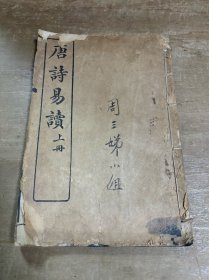 唐詩易讀
上冊
周三娣小姐